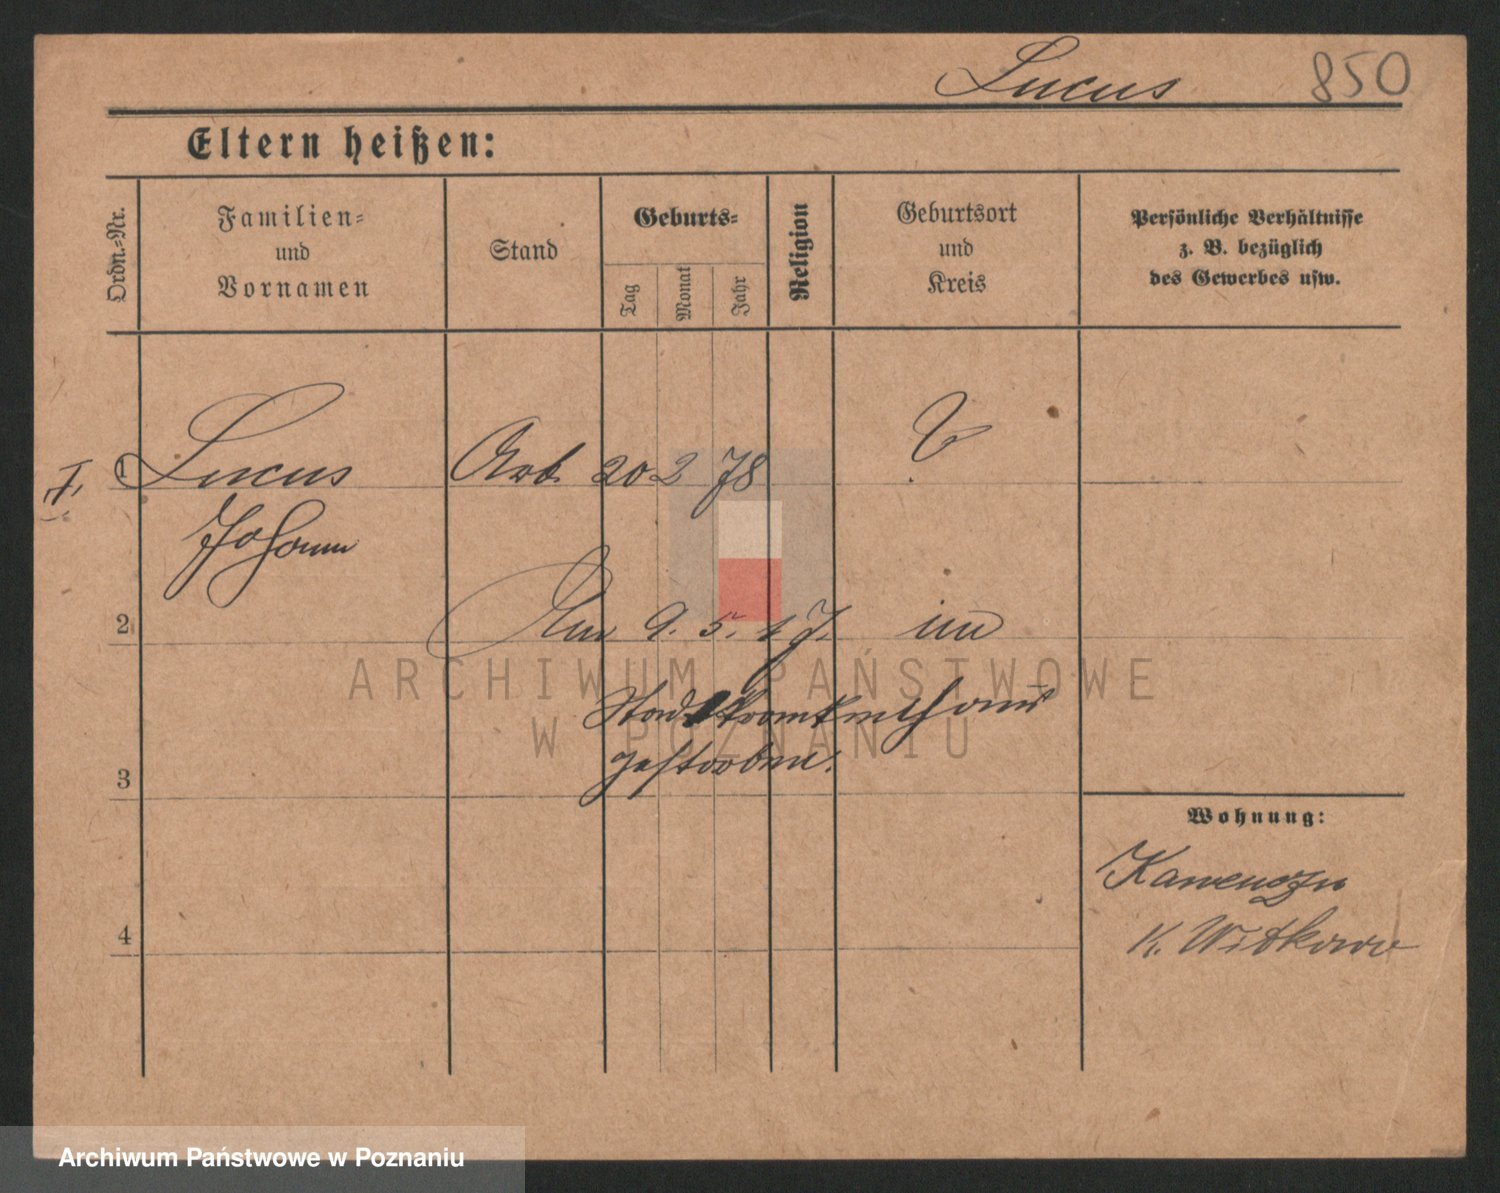 Lucus 850
Eltern heißen:
Ordn.-Nr.
Familien-
und
Vornamen
Stand
Geburts-
Tag
Monat
Jahr
Religion
Geburtsort
und
Kreis
Persönliche Verhältnisse
z. B. bezüglich
des Gewerbes usw.
1 Lucus Arb. 20 2 78 ?
Johann
2 Am 9. 5. im
Stadtkrankenhaus
gestorben.
3
4
Wohnung:
K. Witkowo
ARCHIWUM PAŃSTWOWE
W POZNANIU
Archiwum Państwowe w Poznaniu